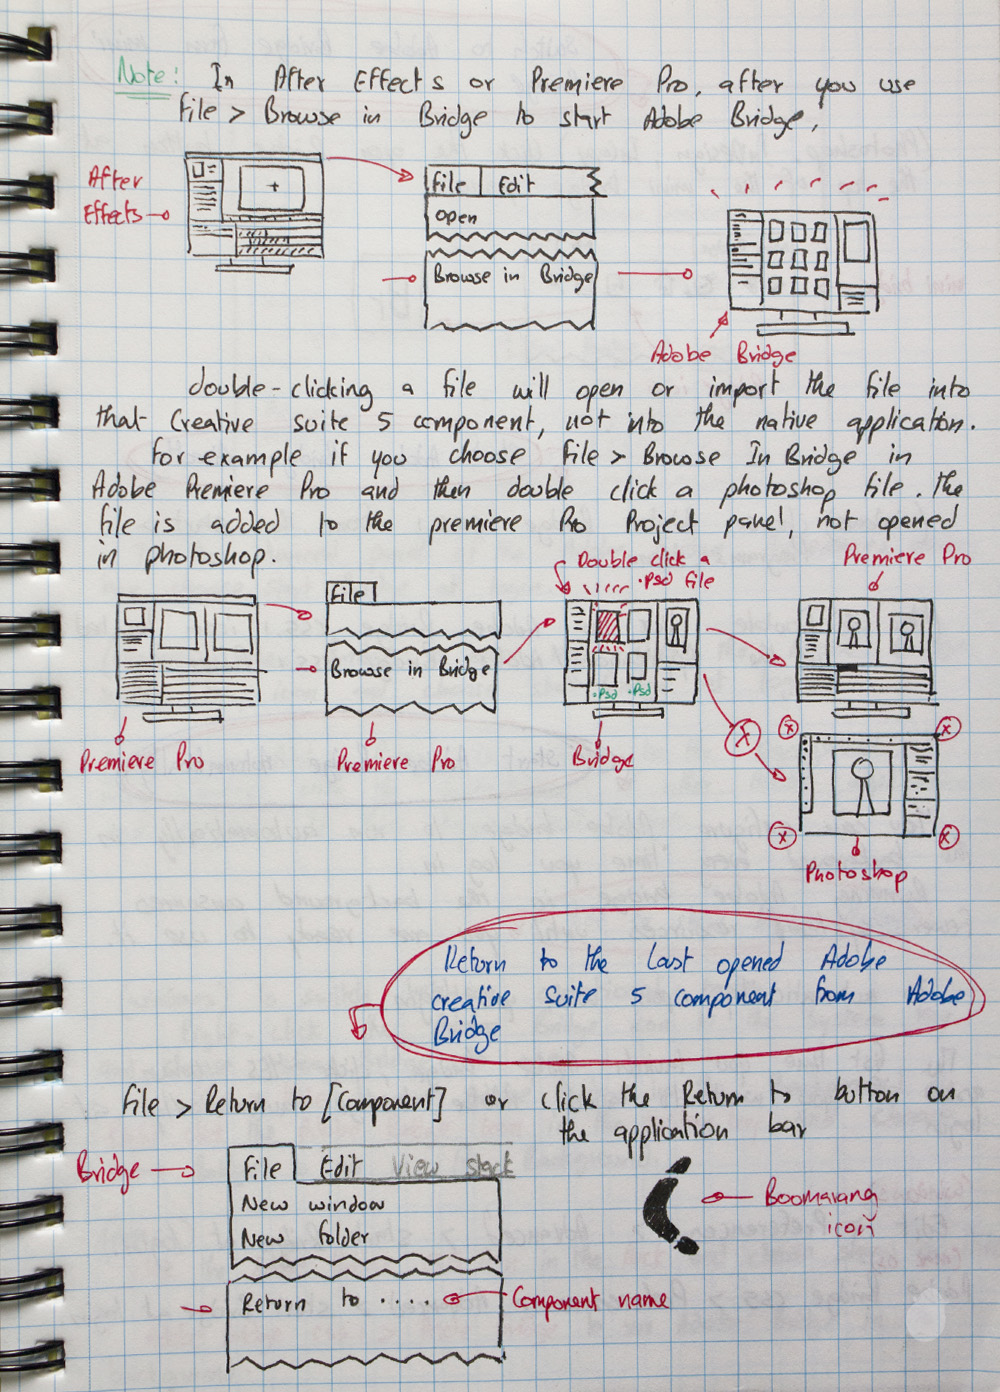 Note: In After Effects or Premiere Pro, after you use
File > Browse in Bridge to start Adobe Bridge,
After
Effects
File Edit
open
Browse in Bridge
Adobe Bridge
double-clicking a file will open or import the file into
that Creative suite 5 component, not into the native application.
For example if you choose File > Browse In Bridge in
Adobe Premiere Pro and then double click a photoshop file. the
file is added to the premiere Pro Project panel, not opened
in photoshop.
Double click a
.Psd file
Premiere Pro
File
Browse in Bridge
.Psd .Psd
Premiere Pro
Premiere Pro
Bridge
x
x x
x x
Photoshop
Return to the Last opened Adobe
creative suite 5 component from Adobe
Bridge
File > Return to [Component] or click the Return to button on
the application bar
Bridge
File Edit View stack
New window
New folder
Return to ....
Component name
Boomarang
icon